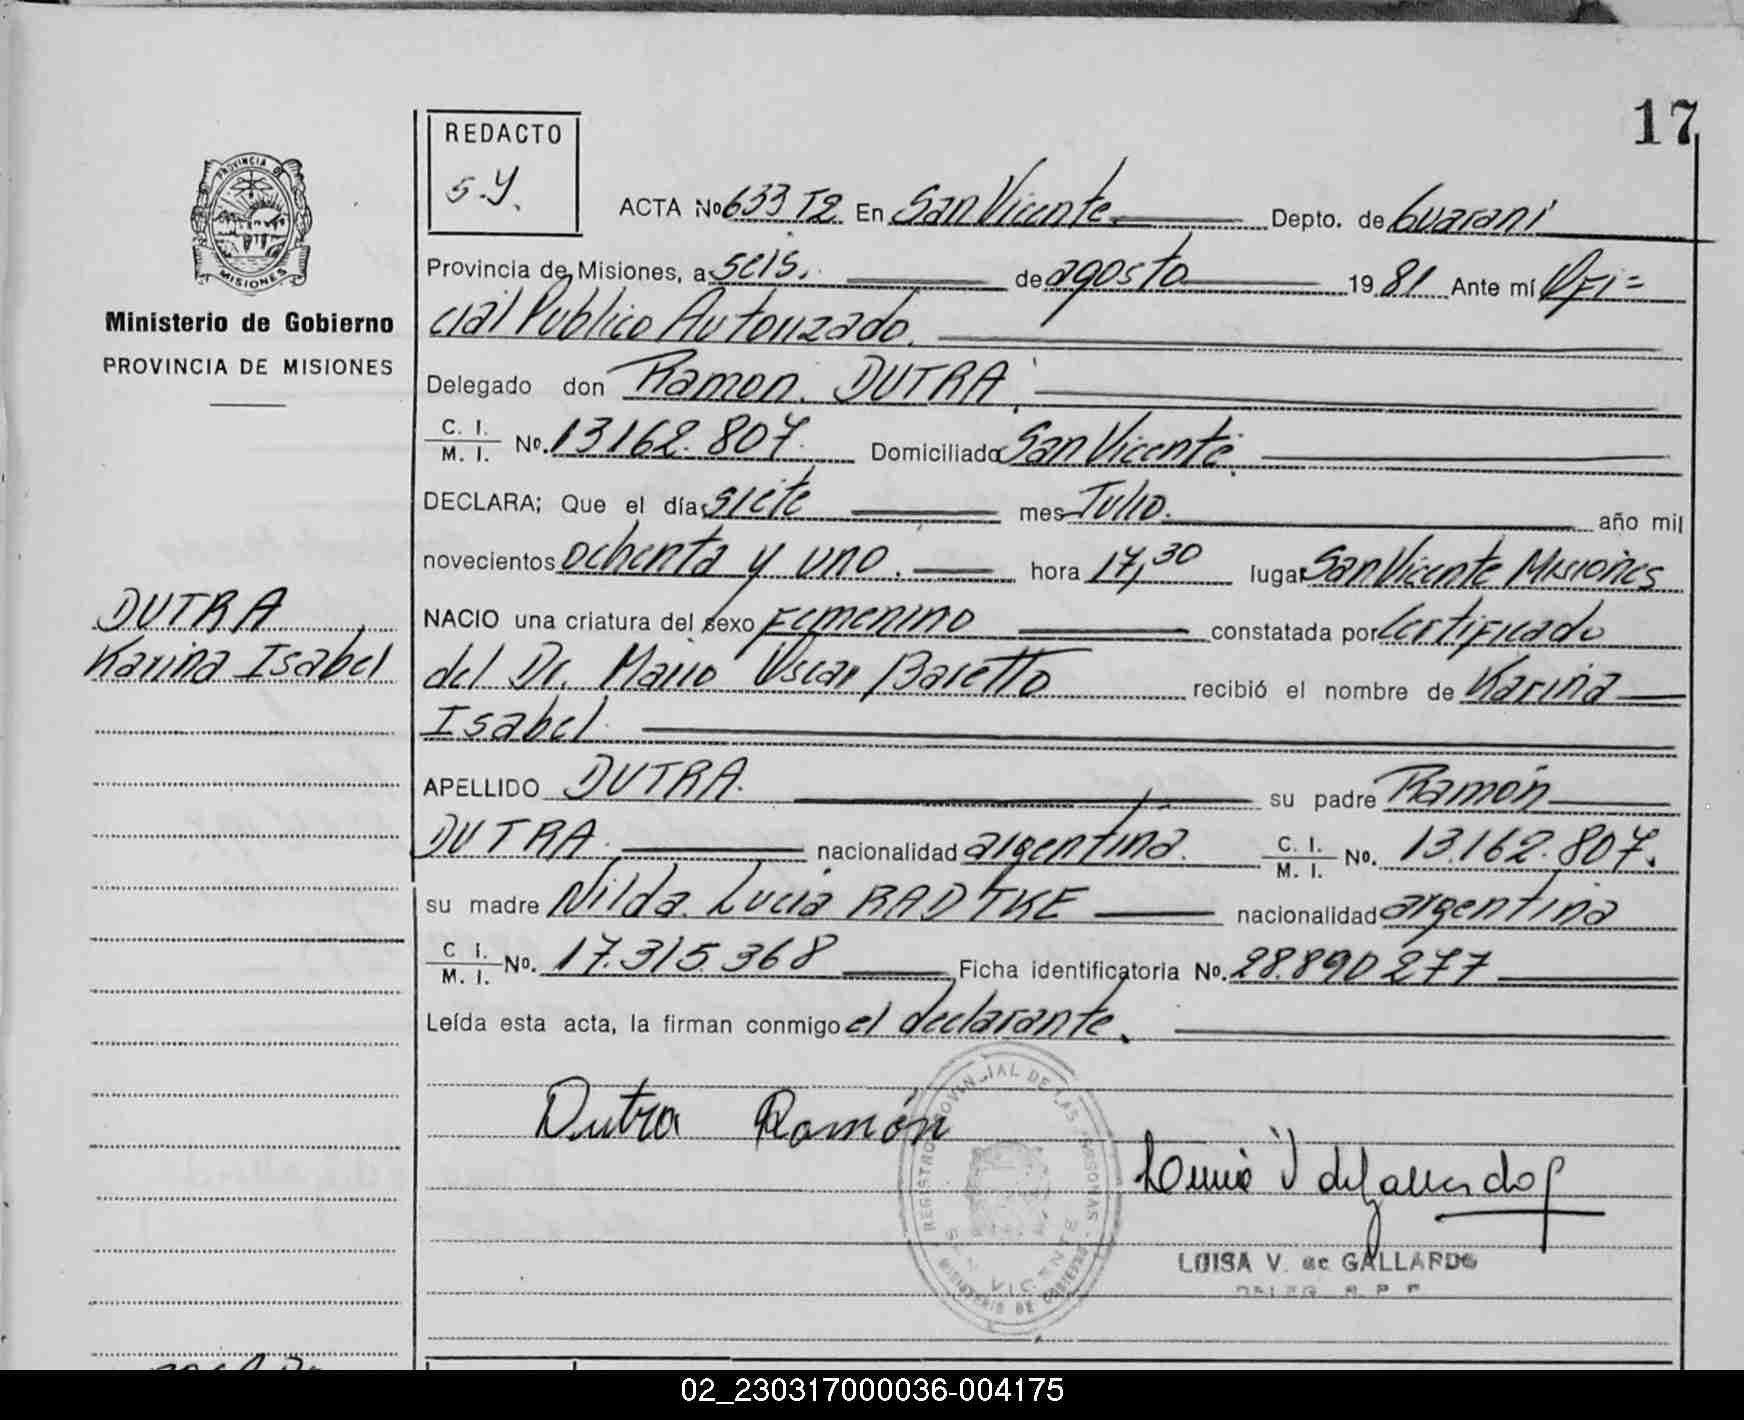 17
REDACTO
S.Y.
PROVINCIA DE MISIONES
Ministerio de Gobierno
PROVINCIA DE MISIONES
DUTRA
Karina Isabel
ACTA Nº 633 T2 En San Vicente Depto. de Guarani
Provincia de Misiones, a seis. de agosto 1981 Ante mí Ofi=
cial Publico Autorizado.
Delegado don Ramon. DUTRA
C. I. / M. I. Nº. 13162.807. Domiciliado San Vicente.
DECLARA; Que el día siete mes Julio. año mil
novecientos ochenta y uno. hora 17,30 lugar San Vicente Misiones
NACIO una criatura del sexo Femenino constatada por Certificado
del Dr. Mario Oscar Baretto recibió el nombre de Karina
Isabel.
APELLIDO DUTRA. su padre Ramón
DUTRA. nacionalidad argentina. C. I. / M. I. Nº. 13.162.807.
su madre Nilda. Lucia RADTKE nacionalidad argentina
C. I. / M. I. Nº. 17.315.368 Ficha identificatoria Nº. 28.890.277
Leída esta acta, la firman conmigo el declarante.
Dutra Ramón
REGISTRO PROVINCIAL DE LAS PERSONAS
SAN VICENTE
MINISTERIO DE GOBIERNO
V de Gallardo
LUISA V. de GALLARDO
02_230317000036-004175